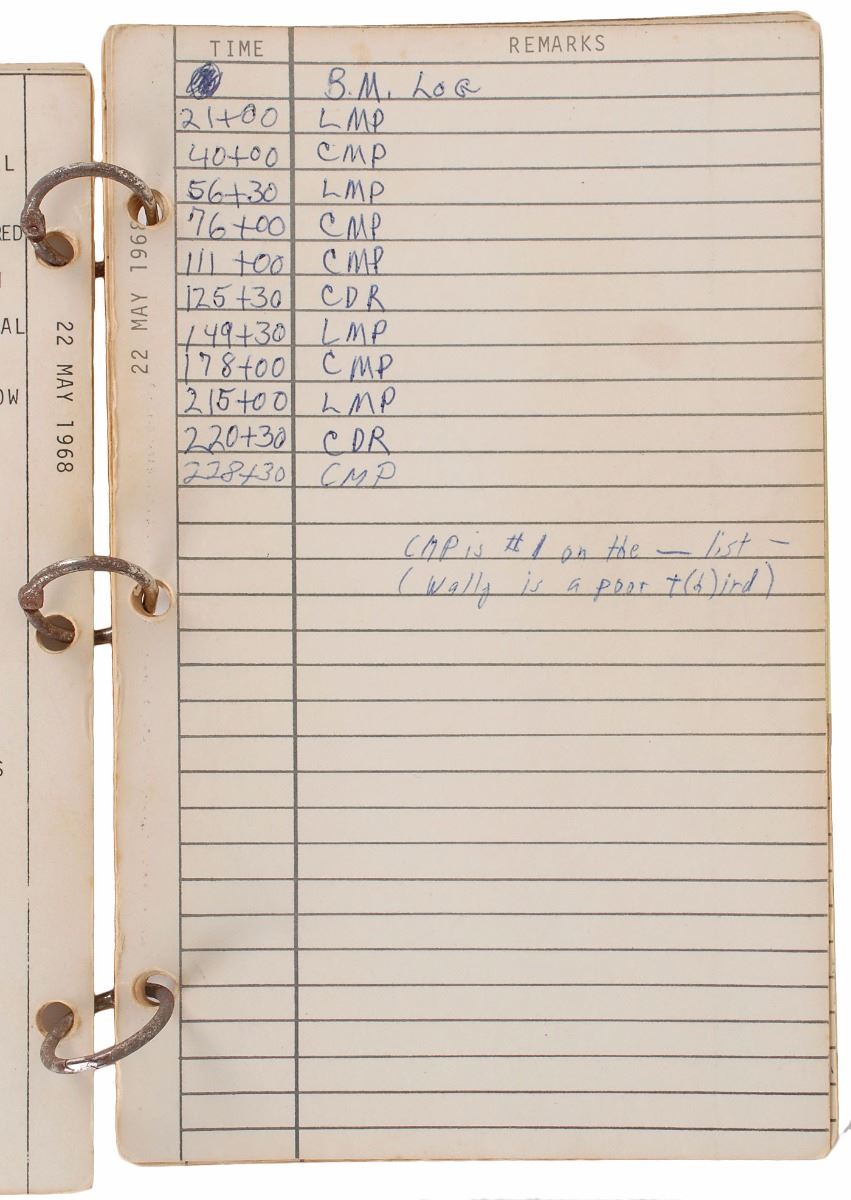 L
RED
AL
OW
S
22 MAY 1968
22 MAY 1968
TIME REMARKS
B.M. LOG
21+00 LMP
40+00 CMP
56+30 LMP
76+00 CMP
111+00 CMP
125+30 CDR
149+30 LMP
178+00 CMP
215+00 LMP
220+30 CDR
228+30 CMP
CMP is #1 on the — list —
(Wally is a poor t(h)ird)